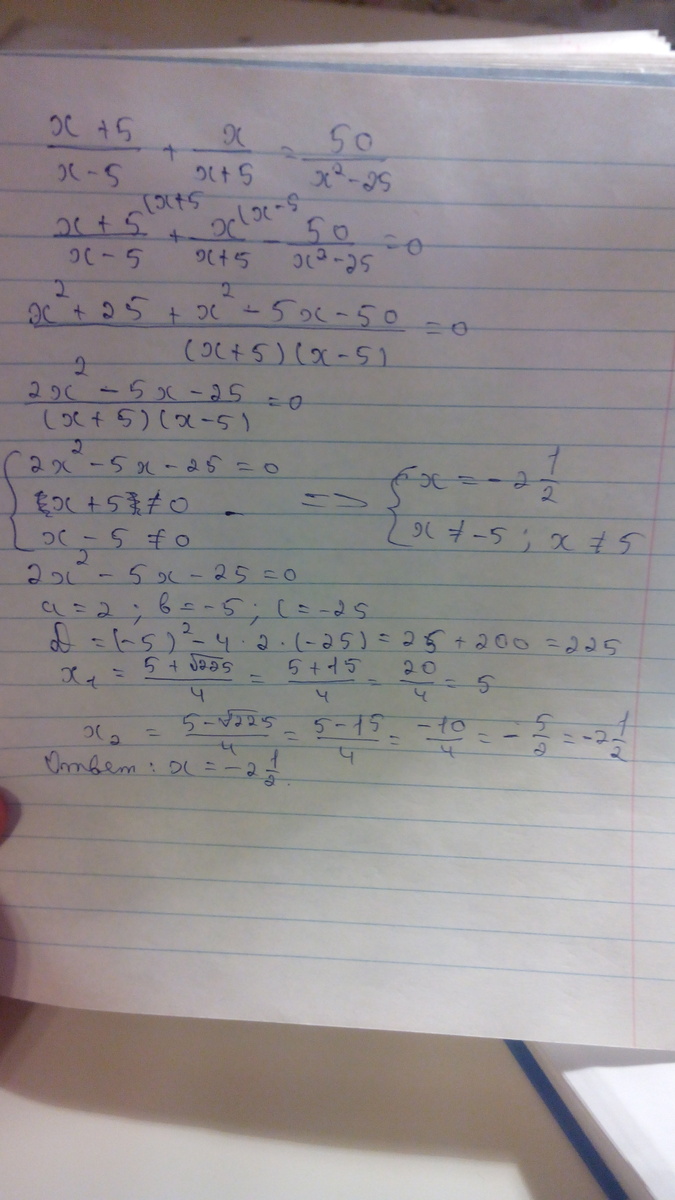 x + 5 / x - 5 + x / x + 5 = 50 / x² - 25
x + 5 (x+5 / x - 5 + x (x - 5 / x + 5 - 50 / x² - 25 = 0
x² + 25 + x² - 5x - 50 / (x + 5) (x - 5) = 0
2x² - 5x - 25 / (x + 5) (x - 5) = 0
{ 2x² - 5x - 25 = 0
x + 5 ≠ 0 => { x = -2 1/2
x - 5 ≠ 0 x ≠ -5 ; x ≠ 5
2x² - 5x - 25 = 0
a = 2 ; b = -5 ; c = -25
D = (-5)² - 4 · 2 · (-25) = 25 + 200 = 225
x₁ = 5 + √225 / 4 = 5 + 15 / 4 = 20 / 4 = 5
x₂ = 5 - √225 / 4 = 5 - 15 / 4 = -10 / 4 = - 5 / 2 = -2 1/2
Ответ : x = -2 1/2.